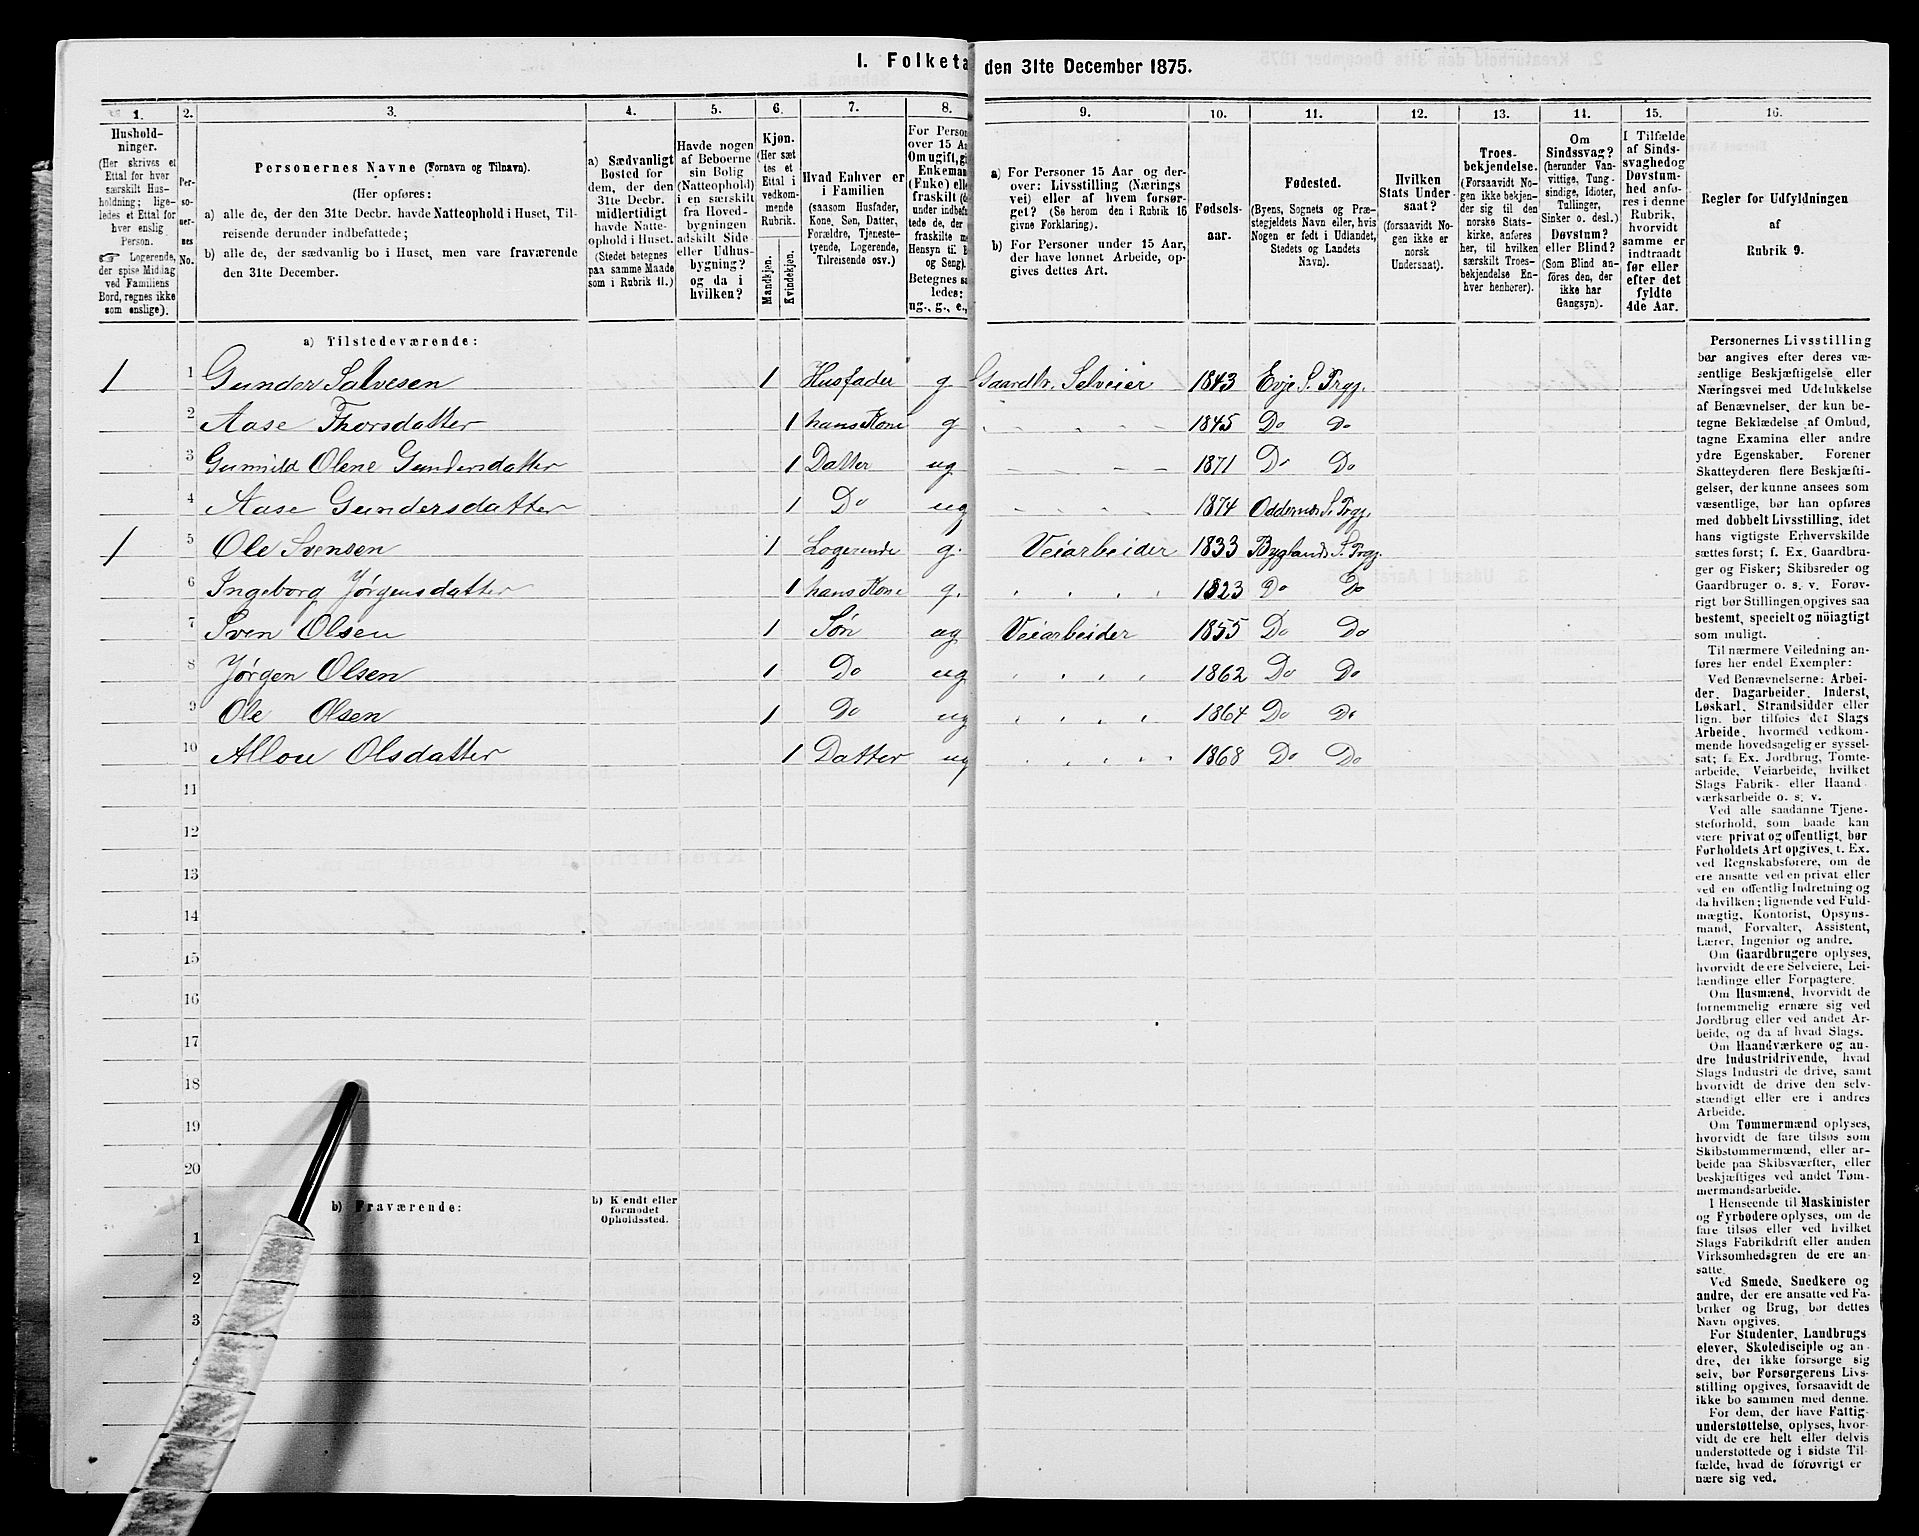 I. Folketa den 31te December 1875.
1. 2. 3. 4. 5. 6. 7. 8. 9. 10. 11. 12. 13. 14. 15. 16.
Hushold-
ninger.
(Her skrives et
Ettal for hver
særskilt Hus-
holdning; lige-
ledes et Ettal for
hver enslig
Person.
☞ Logerende,
der spise Middag
ved Familiens
Bord, regnes ikke
som enslige).
Per-
so-
ner-
nes
No.
Personernes Navne (Fornavn og Tilnavn).
(Her opføres:
a) alle de, der den 31te Decbr. havde Natteophold i Huset, Til-
reisende derunder indbefattede;
b) alle de, der sædvanlig bo i Huset, men vare fraværende
den 31te December.
a) Sædvanligt
Bosted for
dem, der den
31te Decbr.
midlertidigt
havde Natte-
ophold i Huset.
(Stedet betegnes
paa samme Maade
som i Rubrik 11.)
Havde nogen
af Beboerne
sin Bolig
(Natteophold)
i en særskilt
fra Hoved-
bygningen
adskilt Side
eller Udhus-
bygning?
og da i
hvilken?
Kjøn.
(Her sæt
tes et
Ettal i
vedkom-
mende
Rubrik.
Mandkjøn.
Kvindekjøn.
Hvad Enhver er
i Familien
(saasom Husfader,
Kone, Søn, Datter,
Forældre, Tjeneste-
tyende, Logerende,
Tilreisende osv.)
For Person
over 15 Aa
Om ugift, gi
Enkeman
(Enke) elle
fraskilt (d
under indbef
tede de, der
fraskilte m
Hensyn til B
og Seng).
Betegnes sa
ledes:
ug., g., e.,
a) For Personer 15 Aar og der-
over: Livsstilling (Nærings
vei) eller af hvem forsør-
get? (Se herom den i Rubrik 16
givne Forklaring).
b) For Personer under 15 Aar,
der have lønnet Arbeide, op-
gives dettes Art.
Fødsels-
aar.
Fødested.
(Byens, Sognets og Præ-
stegjeldets Navn eller, hvis
Nogen er født i Udlandet,
Stedets og Landets
Navn).
Hvilken
Stats Under-
saat?
(forsaavidt No-
gen ikke er
norsk
Undersaat).
Troes-
bekjendelse.
(Forsaavidt No-
gen ikke bekjen-
der sig til den
norske Stats-
kirke, anføres
her, til hvilken
særskilt Troes-
bekjendelse En-
hver henhører).
Om
Sindssvag?
(herunder Van-
vittige, Tung-
sindige, Idioter,
Tullinger,
Sinker o. desl.)
Døvstum?
eller Blind?
(Som Blind an-
føres den, der
ikke har
Gangsyn).
I Tilfælde
af Sinds-
svaghed og
Døvstum-
hed anfø-
res i denne
Rubrik,
hvorvidt
samme er
indtraadt
før eller
efter det
fyldte
4de Aar.
Regler for Udfyldningen
af
Rubrik 9.
a) Tilstedeværende:
1 1 Gunder Salvesen 1 Husfader g Gaardbr. Selveier 1843 Evje S. Prgj.
2 Aase Thorsdatter 1 hans Kone g 1845 Do Do
3 Gunvild Olene Gundersdatter 1 Datter ug 1871 Do Do
4 Aase Gundersdatter 1 Do ug 1874 Oddernes S. Prgj.
1 5 Ole Svensen 1 Logerende g. Veiarbeider 1833 Byglands S. Prgj.
6 Ingeborg Jørgensdatter 1 hans Kone g. 1823 Do Do
7 Sven Olsen 1 Søn ug Veiarbeider 1855 Do Do
8 Jørgen Olsen 1 Do ug 1862 Do Do
9 Ole Olsen 1 Do ug 1864 Do Do
10 Olsdatter 1 Datter ug 1868 Do Do
11
12
13
14
15
16
17
18
19
20
b) Fraværende:
b) Kjendt eller
formodet
Opholdssted.
1
2
3
4
Personernes Livsstilling
bør angives efter deres væ-
sentlige Beskjæftigelse eller
Næringsvei med Udelukkelse
af Benævnelser, der kun be-
tegne Beklædelse af Ombud,
tagne Examina eller andre
ydre Egenskaber. Forener
Skatteyderen flere Beskjæfti-
gelser, der kunne ansees som
væsentlige, bør han opføres
med dobbelt Livsstilling, idet
hans vigtigste Erhvervskilde
sættes først; f. Ex. Gaardbru-
ger og Fisker; Skibsreder og
Gaardbruger o. s. v. Forøv-
rigt bør Stillingen opgives saa
bestemt, specielt og nöiagtigt
som muligt.
Til nærmere Veiledning an-
føres her endel Exempler:
Ved Benævnelserne: Arbei-
der, Dagarbeider, Inderst,
Løskarl, Strandsidder eller
lign. bør tilføies det Slags
Arbeide, hvormed vedkom-
mende hovedsagelig er syssel-
sat; f. Ex. Jordbrug, Tomte-
arbeide, Veiarbeide, hvilket
Slags Fabrik- eller Haand
værksarbeide o. s. v.
Ved alle saadanne Tjene-
steforhold, som baade kan
være privat og offentligt, bør
Forholdets Art opgives, t. Ex.
ved Regnskabsførere, om de
ere ansatte ved en privat eller
ved en offentlig Indretning og
da hvilken; lignende ved Fuld-
mægtig, Kontorist, Opsyns-
mand, Forvalter, Assistent,
Lærer, Ingeniør og andre.
Om Gaardbrugere oplyses,
hvorvidt de ere Selveiere, Lei-
lændinge eller Forpagtere.
Om Husmænd, hvorvidt de
fornemmelig ernære sig ved
Jordbrug eller ved andet Ar-
beide, og da af hvad Slags.
Om Haandværkere og an-
dre Industridrivende, hvad
Slags Industri de drive, samt
hvorvidt de drive den selv-
stændigt eller ere i andres
Arbeide.
Om Tømmermænd oplyses,
hvorvidt de fare tilsøs som
Skibstømmermænd, eller ar-
beide paa Skibsværfter, eller
beskjæftiges ved andet Tøm-
mermandsarbeide.
I Henseende til Maskinister
og Fyrbødere oplyses, om de
fare tilsøs eller ved hvilket
Slags Fabrikdrift eller anden
Virksomhedsgren de ere an-
satte.
Ved Smede, Snedkere og
andre, der ere ansatte ved Fa-
briker og Brug, bør dettes
Navn opgives.
For Studenter, Landbrugs
elever, Skoledisciple og an-
dre, der ikke forsørge sig
selv, bør Forsørgerens Livs-
stilling opgives, forsaavidt de
ikke bo sammen med denne.
For dem, der have Fattig-
understøttelse, oplyses, hvor-
vidt de ere helt eller delvis
understøttede og i sidste Til-
fælde, hvad de forøvrigt er
nære sig ved.